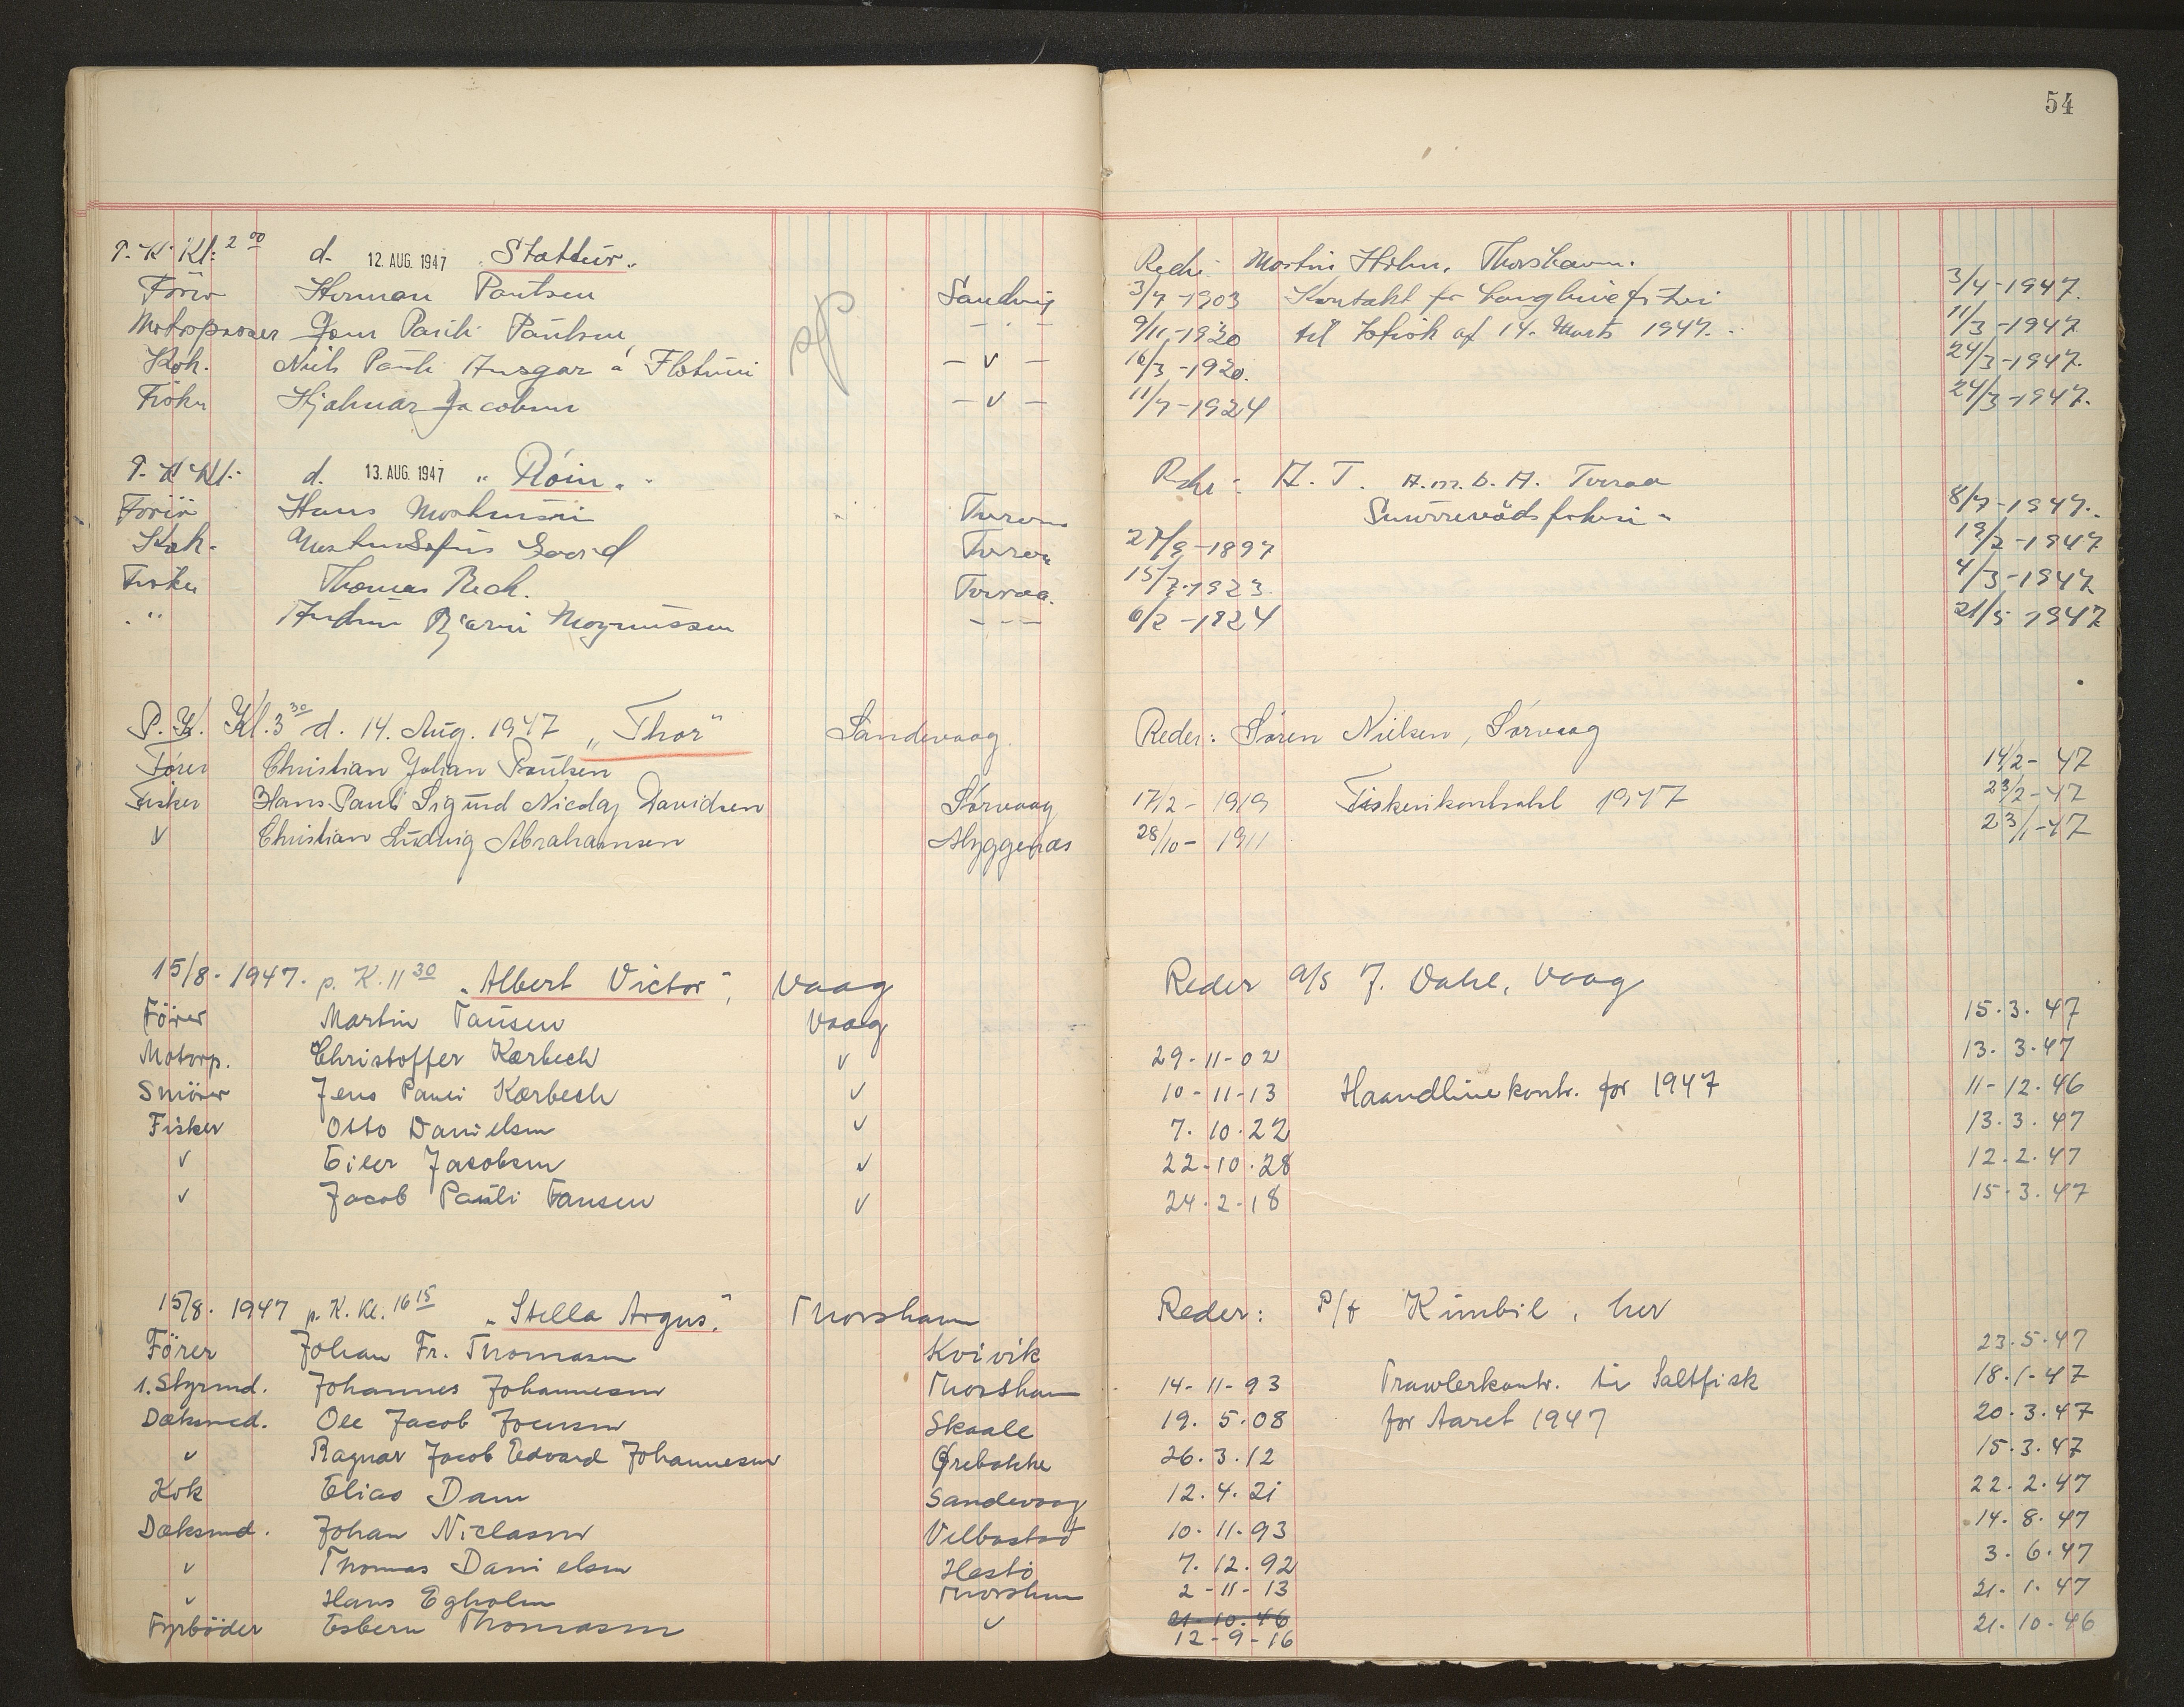 54
P. K. Kl: 2 00 d. 12. AUG. 1947 "Stattur" Reder: Martin Holm, Thorshavn.
Förer Herman Poulsen Sandvig 3/7-1903 Kontrakt for 3/4-1947.
Motorpasser Jens Pauli Paulsen - " - 9/11-1920 til af 14. Marts 1947. 11/3-1947
Kok. Niels Pauli Ansgar á Fløtuni - v - 16/3-1920. 24/3-1947.
Fisker Hjalmar Jacobsen - v - 11/7-1924 24/3-1947.
P. K. Kl: d. 13. AUG. 1947 "Róin" Reder: A. T. A.m.b.A. Tveraa
Förer Hans Tveraa Snurrevaadsfiskeri 8/7-1947.
Kok. Sofus Tveraa 27/9-1897 19/2-1947
Fisker Thomas Bech. Tveraa. 15/7-1923. 4/3-1947
" Bjarni Magnussen - - - 6/2-1924 21/5-1947
P. K. Kl. 3 30 d. 14. Aug. 1947 "Thor" Sandevaag. Reder: Sören Nielsen, Sörvaag
Förer Christian Johan Poulsen 14/2-47
Fisker Hans Pauli Sigurd Nicolaj Davidsen Sörvaag 17/2-1919 Fiskerikontrakt 1947 23/2-47
v Christian Ludvig Abrahamsen Myggenæs 28/10-1911 23/1-47
15/8-1947. p. K. 11 30 "Albert Victor", Vaag Reder A/S J. Dahl, Vaag
Förer Martin Tausen Vaag 15.3.47
Motorp. Christoffer Kærbech v 29-11-02 13.3.47
Smörer Jens Pauli Kærbech v 10-11-13 Haandlinekontr. for 1947 11-12.46
Fisker Otto Danielsen v 7.10.22 13.3.47
v Eiler Jacobsen v 22-10.28 12.2.47
v Jacob Pauli Tausen v 24.2.18 15.3.47
15/8. 1947 p. K. Kl. 16 15 "Stella Argus." Thorshavn Reder: P/f Kimbil, her
Förer Johan Fr. Thomasen Kvivik 23.5.47
1. Styrmd. Johannes Johannesen Thorshavn 14-11-93 Trawlerkontr. til Saltfisk 18.1-47
Dæksmd. Ole Jacob Joensen Skaale 19.5.08 for Aaret 1947 20.3.47
v Ragnar Jacob Edvard Johannesen Ørebakke 26.3.12 15.3.47
Kok Elias Dam Sandevaag 12.4.21 22.2.47
Dæksmd. Johan Niclasen Velbastad 10.11.93 14.8.47
v Thomas Danielsen Hestö 7.12.92 3.6.47
v Hans Egholm Thorshavn 2-11-13 21.1.47
Fyrböder Esbern Thomasen v 21-10.46 21.10.46
12-9-16